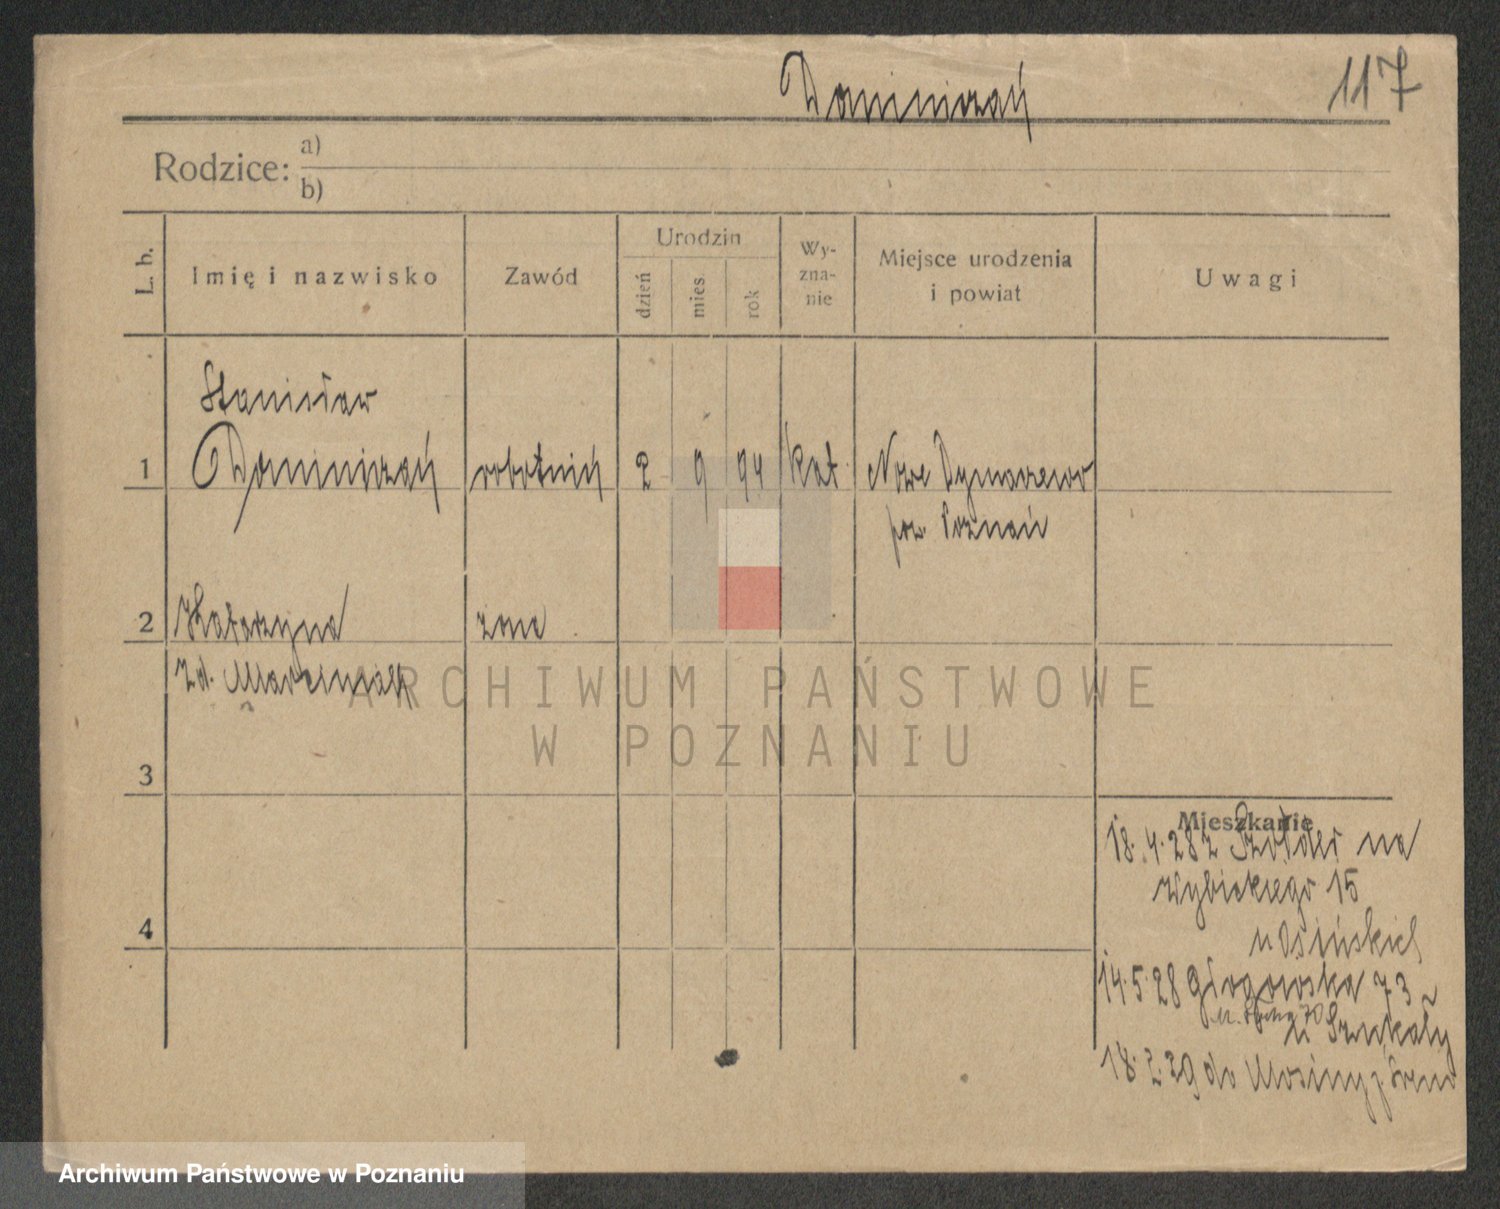 Dominiczak
117
Rodzice:
a)
b)
L. b.
Imię i nazwisko
Zawód
Urodzin
dzień
mies.
rok
Wy-
zna-
nie
Miejsce urodzenia
i powiat
Uwagi
Stanisław
1 Dominiczak robotnik 2 9 94 kat. Nowe Dymaczewo
pow. Poznań
2 Katarzyna żona
zd. Marciniak
ARCHIWUM PAŃSTWOWE
W POZNANIU
3
Mieszkanie
18.4.28 z na
Wybickiego 15
u Osińskich
4
14.5.28 Głogowska 73
u Szukały
18.2.29 do Mosiny p. Śrem
Archiwum Państwowe w Poznaniu